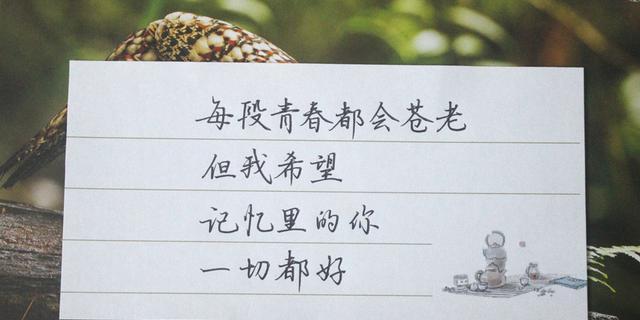 每段青春都会苍老
但我希望
记忆里的你
一切都好